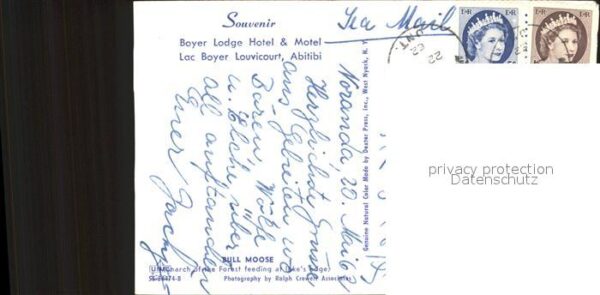 Souvenir
Sea Mail
Boyer Lodge Hotel & Motel
Lac Boyer Louvicourt, Abitibi
Noranda, 20. Mai
Herzlichste Grüsse
aus Gebieten wo
Bären, Wölfe
u. Elche über
all auftauchen
Euer
Genuine Natural Color Made by Dexter Press, Inc., West Nyack, N. Y.
BULL MOOSE
(Monarch of the Forest feeding at lake's edge)
Photography by Ralph Crewett Associates
E R
E R
privacy protection
Datenschutz